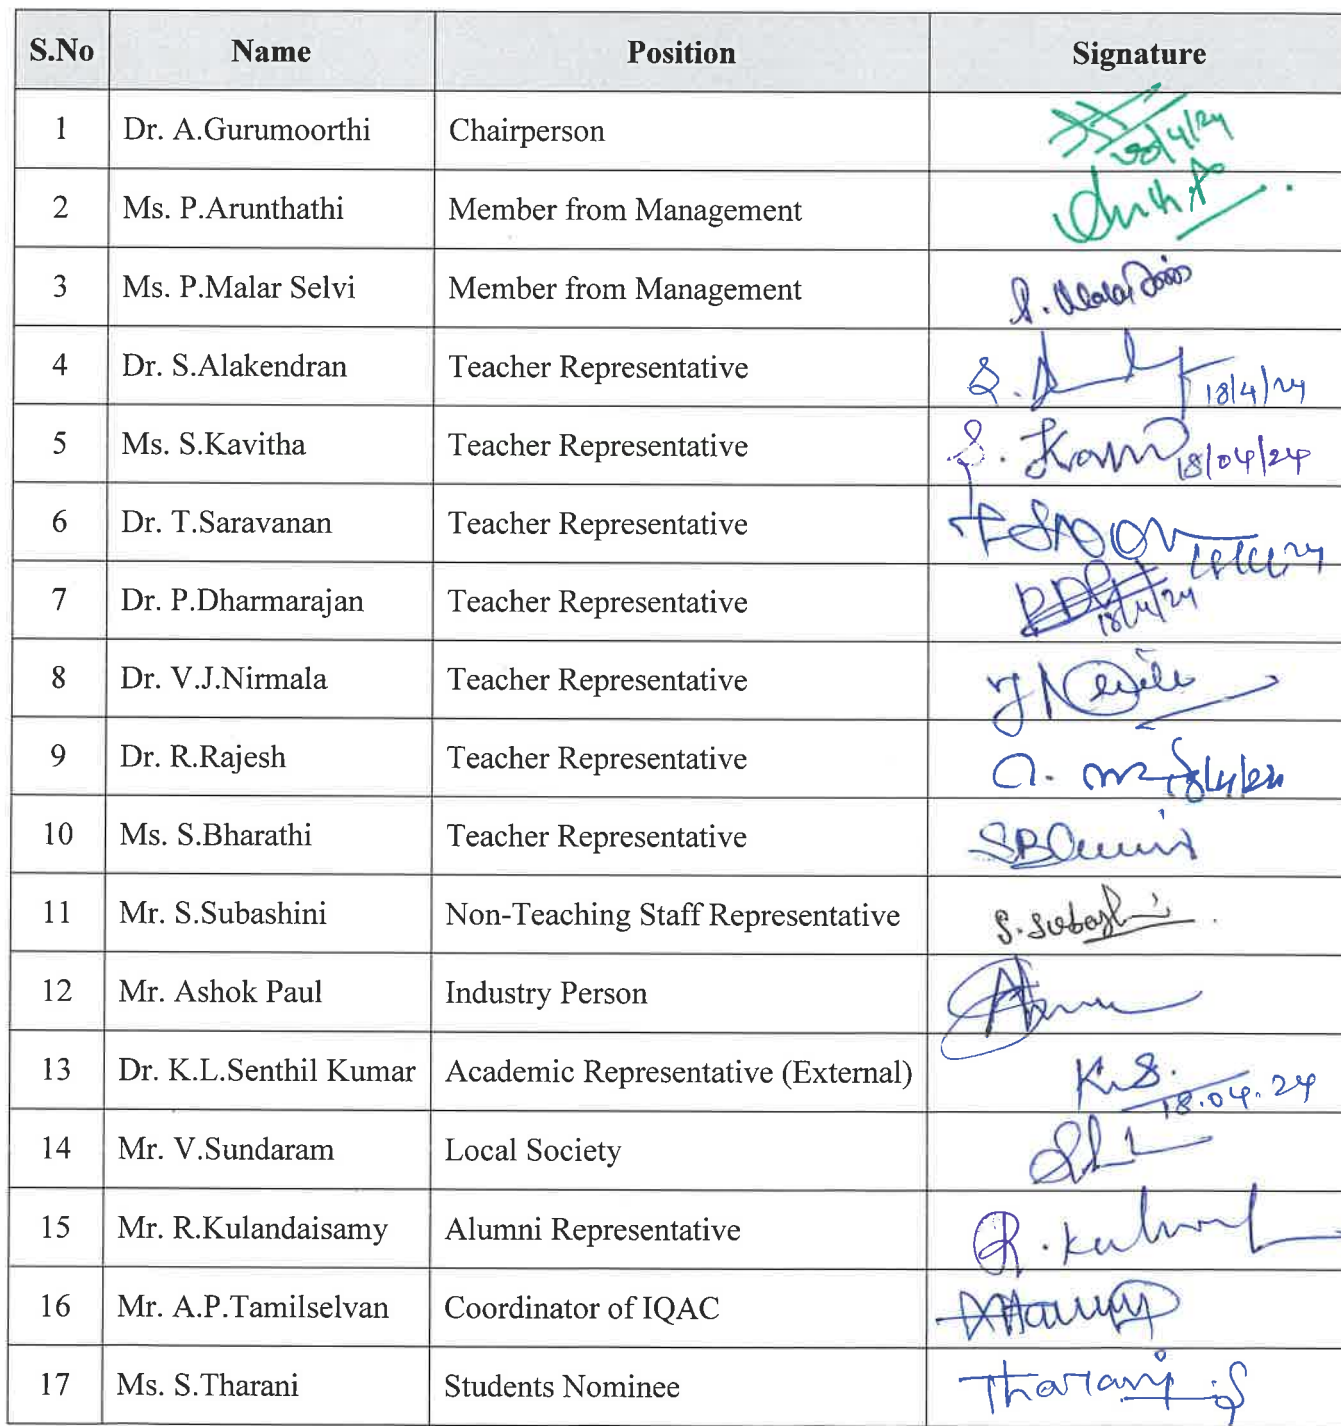 S.No Name Position Signature
1 Dr. A.Gurumoorthi Chairperson
2 Ms. P.Arunthathi Member from Management
3 Ms. P.Malar Selvi Member from Management
4 Dr. S.Alakendran Teacher Representative 18/4/24
5 Ms. S.Kavitha Teacher Representative 18/04/24
6 Dr. T.Saravanan Teacher Representative
7 Dr. P.Dharmarajan Teacher Representative 18/4/24
8 Dr. V.J.Nirmala Teacher Representative
9 Dr. R.Rajesh Teacher Representative
10 Ms. S.Bharathi Teacher Representative
11 Mr. S.Subashini Non-Teaching Staff Representative S.Subashini
12 Mr. Ashok Paul Industry Person
13 Dr. K.L.Senthil Kumar Academic Representative (External) K.S. 18.04.24
14 Mr. V.Sundaram Local Society
15 Mr. R.Kulandaisamy Alumni Representative
16 Mr. A.P.Tamilselvan Coordinator of IQAC
17 Ms. S.Tharani Students Nominee Tharani.S